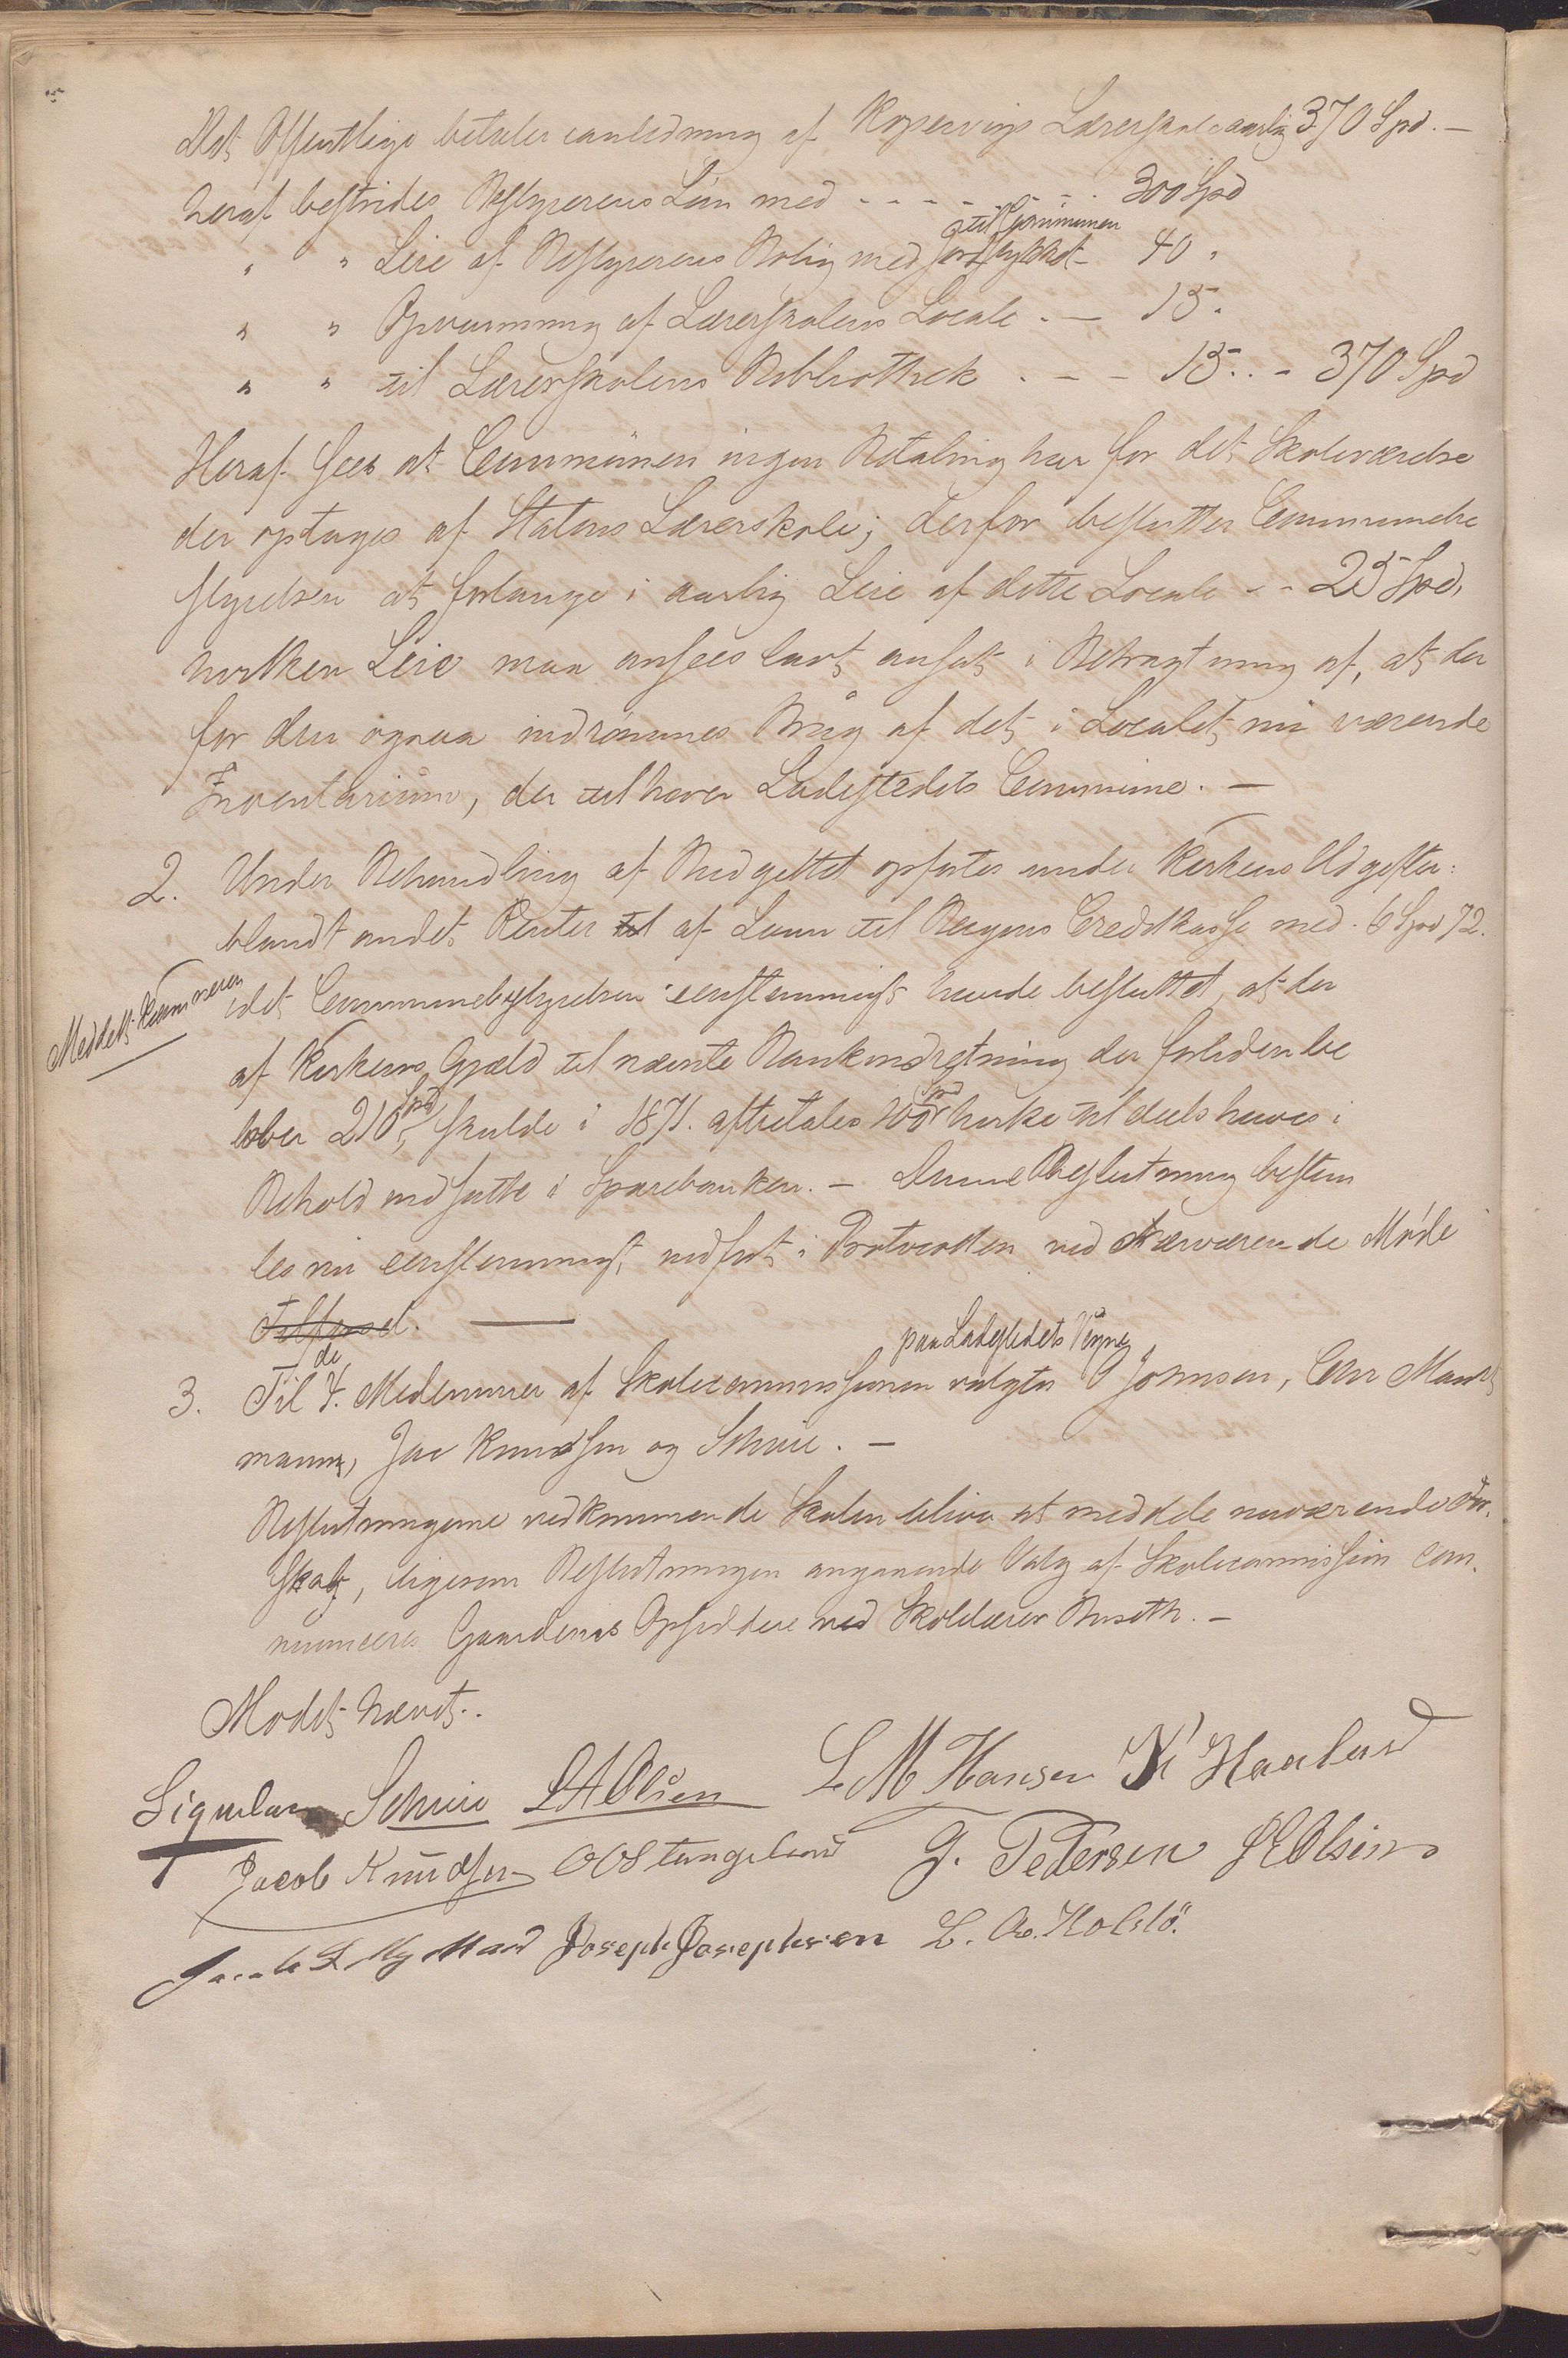 Det Offentlige betaler i anledning af Kopervigs Lærerskole aarlig 370 Spd. —
heraf bestrides Bestyrerens Løn med - - - - - - - 300 Spd
" " Leie af Bestyrerens Bolig med Jordstykket til Communen 40 "
" " Opvarmning af Lærerskolens Locale . — 15 "
" " til Lærerskolens Bibliothek . - - 15 . . - 370 Spd
Heraf sees at Communen ingen Betaling har for det Skoleværelse
der optages af Statens Lærerskole; derfor beslutter Communebe
styrelsen at forlange i aarlig Leie af dette Locale - - 25 Spd,
hvilken Leie maa ansees lavt ansat i Betragtning af, at der
for den ogsaa indrømmes Brug af det i Localet nu værende
Inventarium, der tilhører Ladestedets Commune. —
2. Under Behandling af Budgettet opførtes under Kirkens Udgifter:
blandt andet Renter til af Laan til Bergens Creditkasse med . 6 Spd 72.
Meddelt Kæmneren
idet Communebestyrelsen eenstemmigt havde besluttet at der
af Kirkens Gjæld til nævnte Bankindretning der for Tiden be
løber 210 Spd, skulde i 1871. afbetales 100 Spd hvilke til deels haves i
Behold indsatte i Sparebanken. — Denne Beslutning bestem
tes nu eenstemmigt, indført i Protocollen ved nærværende Møde
Tilført. —
3. Til de 4. Medlemmer af Skolecommissionen valgtes paa Ladestedets Vegne Johnsen, Chr Mands
mann, Jac Knudsen og Schiøie. —
Beslutningerne vedkommende Skolen bliver at meddele nuværende For-
skab, ligesom Beslutningen angaaende Valg af Skolecommission com-
municeres Gaardenes Opsiddere ved Skolelærer Buseth. —
Mødet hævet..
Sigvelan Schiøie L A Olsen L M Hansen K Haaland
Jacob Knudsen O O Stangeland J. Petersen H Olsen
Jacob L Mymand Joseph Josephsen L. A. Holstö.